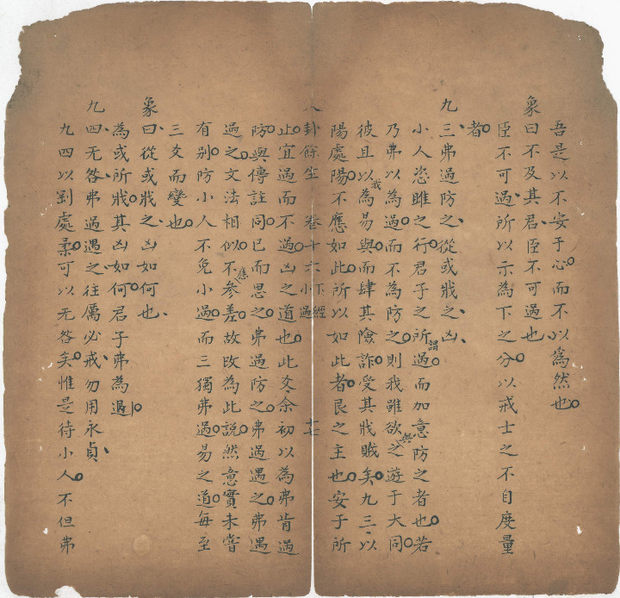 吾是以不安于心而不以爲然也
象曰不及其君臣不可過也
臣不可過所以示為下之分以戒士之不自度量
者
九三弗過防之從或戕之凶
小人恣睢之行君子之所謂過而加意防之者也若
乃弗以為過而不為防之則我雖欲與之遊于大同
彼且以我為易與而肆其險詐受其戕賊矣九三以
陽處陽不應如此所以如此者艮之主也安于所
八卦餘生 卷十六 下經 小過 十七
止宜過而不過凶之道也此爻余初以為弗肯過
防與傳註同已而思之弗過防之弗過遇之弗遇
過之文法相似不應參差故改為此說然意實未嘗
有别防小人不免小過而三獨弗過易之道每至
三爻而變也
象曰從或戕之凶如何也
為或所戕其凶如何君子弗為過
九四无咎弗過遇之往厲必戒勿用永貞
九四以剛處柔可以无咎矣惟是待小人不但弗